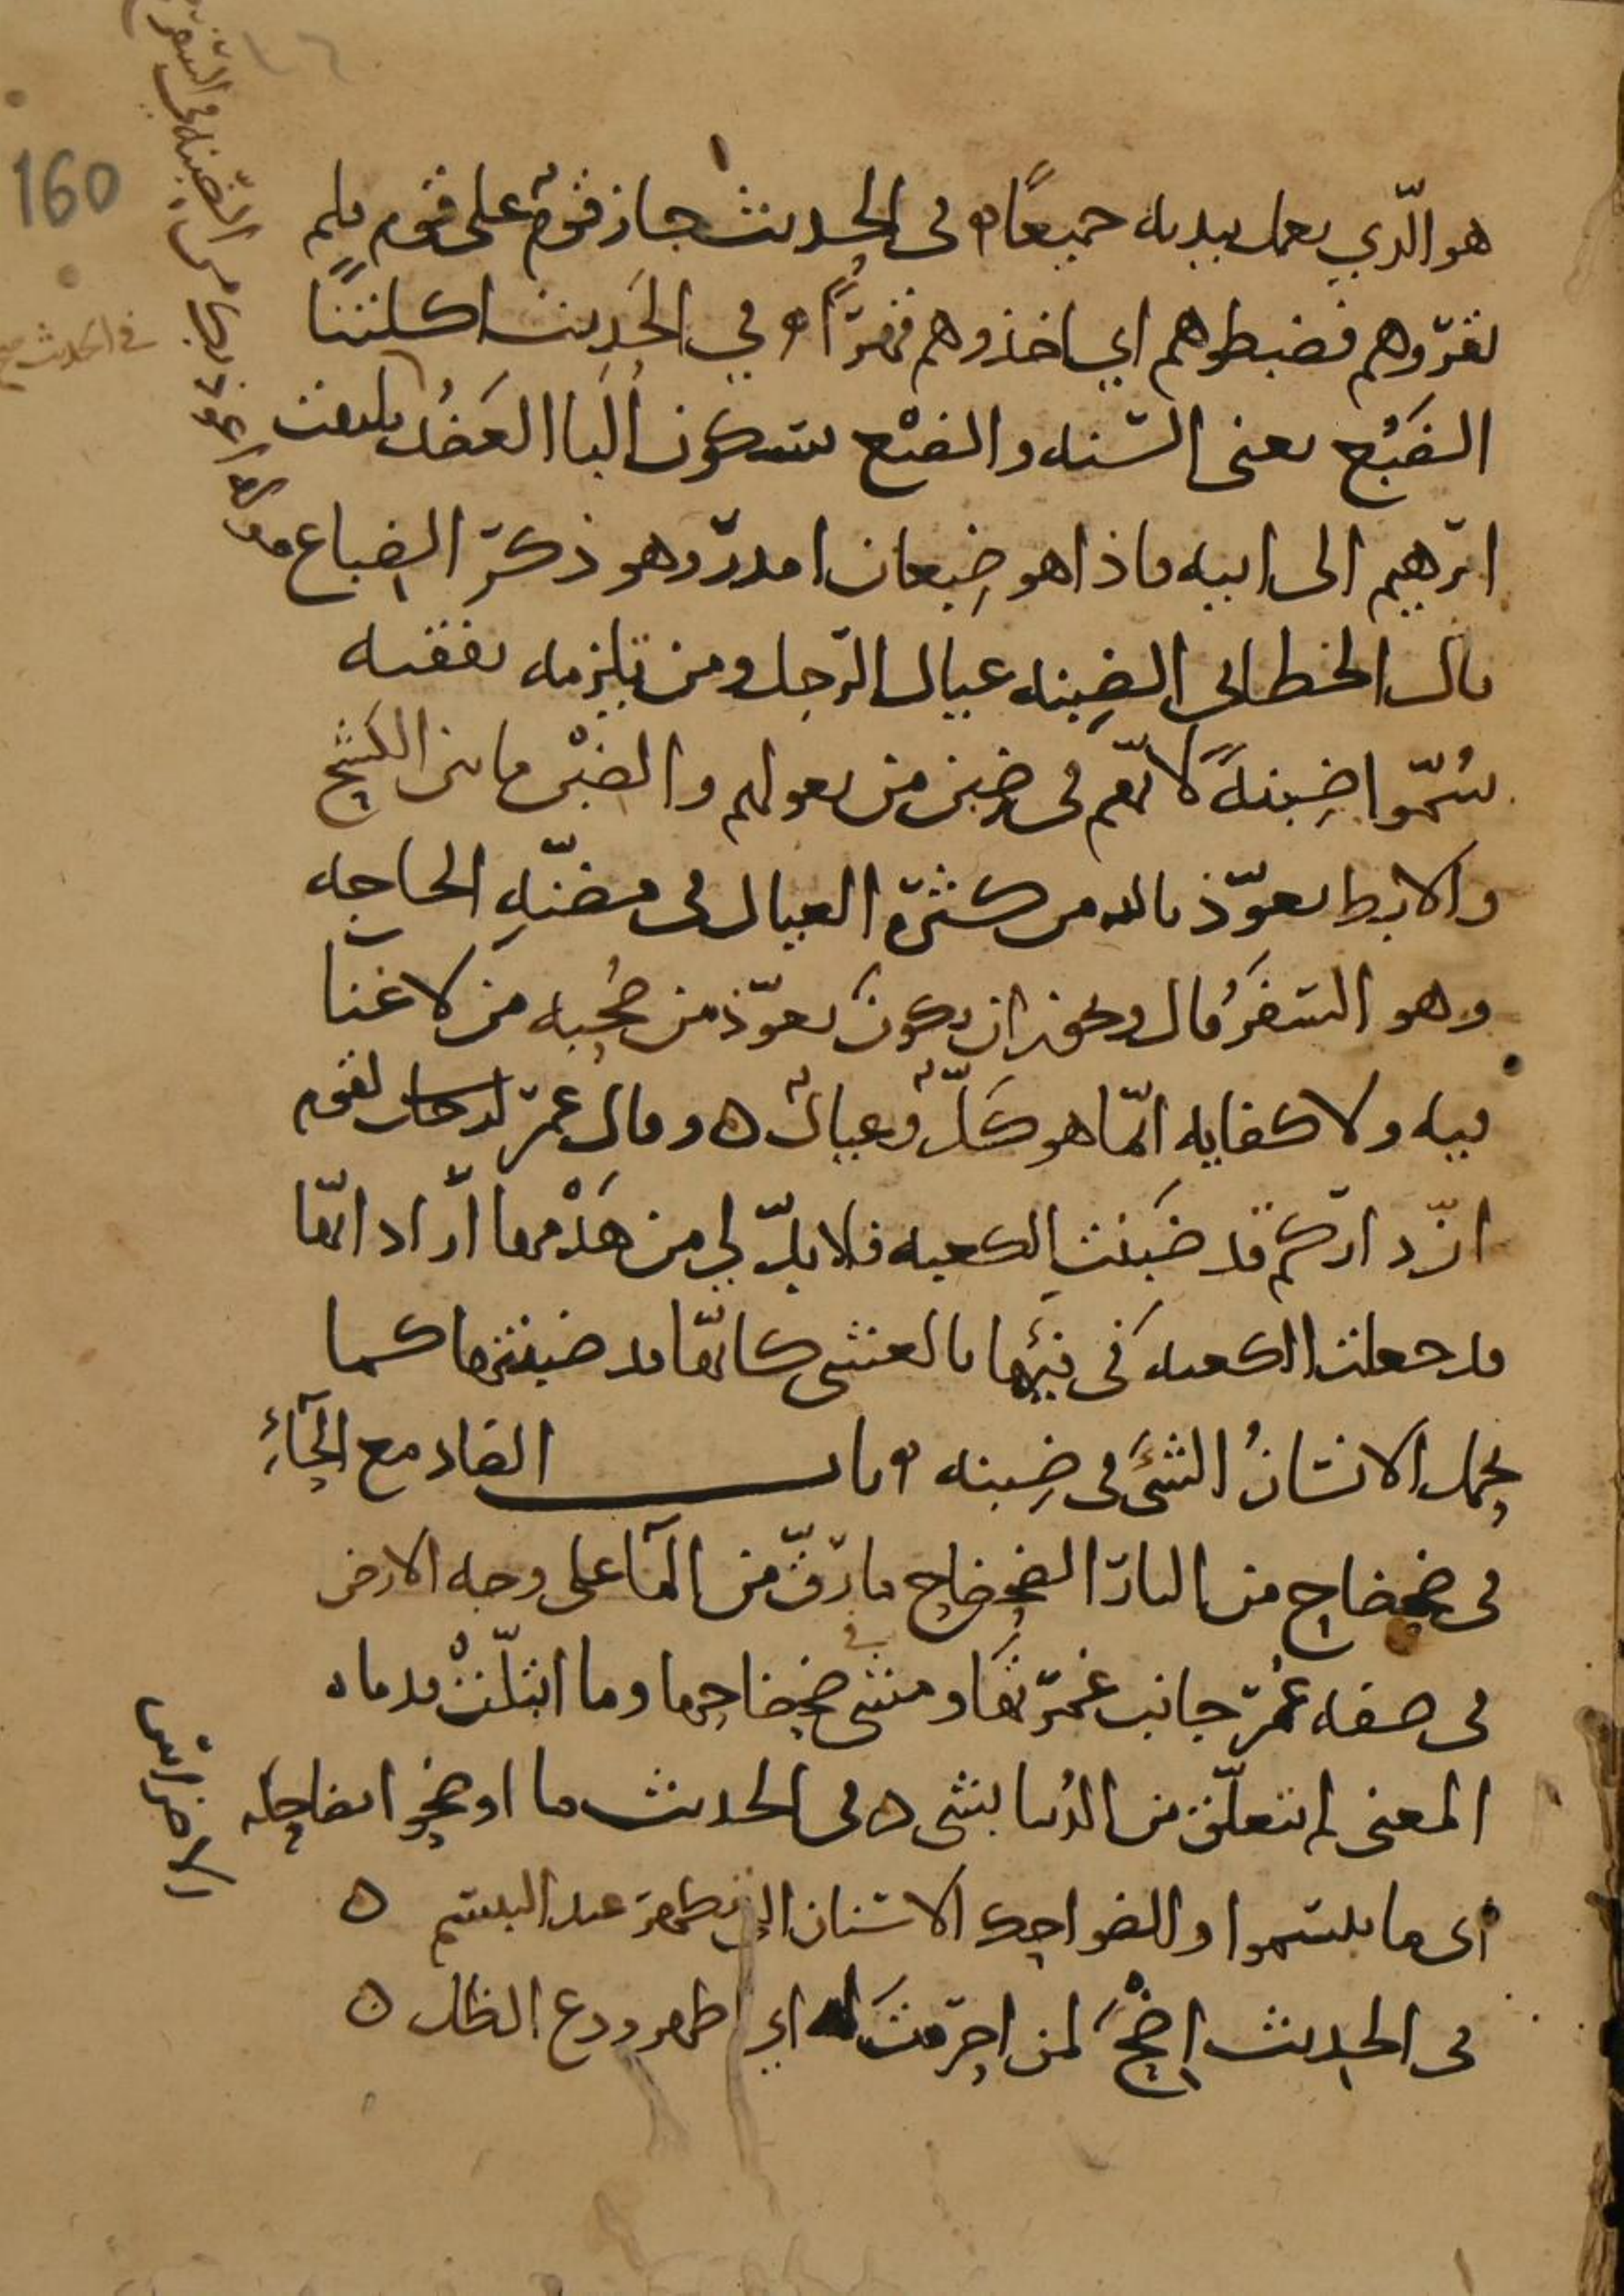 هو الّذي يعمل بيديه جميعًا ه في الحديث جاز قومٌ على قوم فلم
يقرّوهم فضبطوهم اي اخذوهم قهرًا ه وفي الحَديث اكلتنا
الضَبُع يعنى السّنه والضبْع بسكون البا العَضُد يلتفت
ابرهيم الى ابيه فاذا هو ضِبعان امدر وهو ذكر الضباع قوله اعوذ بك من الضّبنه في السّفر
قال الخطابي الضِبنه عيال الرّجل ومن تلزمه نفقته
سُمّوا ضِبنةً لانّهم في ضِبن من يعولهم والضبْن ما بين الكشح
والابط تعوّذ بالله من كثرة العيال في مضنّهِ الحاجه
وهو السّفرُ قال ويجوز ان يكونَ تعوّذ من صُحبه من لا غنا
فيه ولا كفايه انّما هو كَلٌّ وعيالٌ ه وقال عمر لقوم
انّ داركم قد ضبَنتِ الكعبه فلا بدّ لي من هَدْمها اراد انّها
قد جعلت الكعبه في فيئها بالعشى كانّها قد ضبنتها كما
يحمل الانسانُ الشئَ في ضِبنه ه باب الضاد مع الحَآءِ
في ضحضاح من النار الضحضاح ما رقّ من المآ على وجه الارض
في صفه عُمر جانب غمرتها ومشى في ضحضاحها وما ابتلّتْ قدماه
المعنى لم يتعلّق من الدُنيا بشى ه في الحديث ما اوضحوا بضاحكه
اى ما تبسّموا والضواحك الاسنان التي تظهر عند التبسّم ه
في الحديث اِضحَ لمن احرمتَ له اي اظهر ودع الظل ه
في الحديث صح